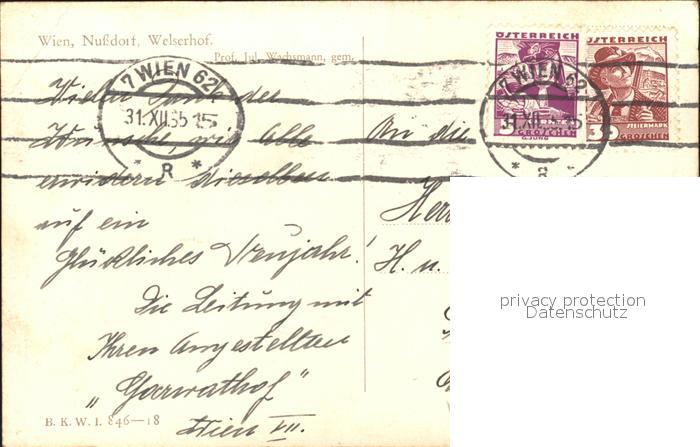 Wien, Nußdorf, Welserhof.
Prof. Jul. Wachsmann, gem.
7 WIEN 62
31.XII.35-15
* R *
ÖSTERREICH
5 GROSCHEN
G. JUNG
7 WIEN 62
31.XII.35-15
* R
ÖSTERREICH
3
STEIERMARK
GROSCHEN
Vielen Dank der
Wünsche, wir Alle
erwidern dieselben
auf ein
glückliches Neujahr!
Die Leitung mit
Ihren Angestellten
„ "
Wien VII.
An die
Herr
H. u.
B. K. W. I. 846—18
privacy protection
Datenschutz